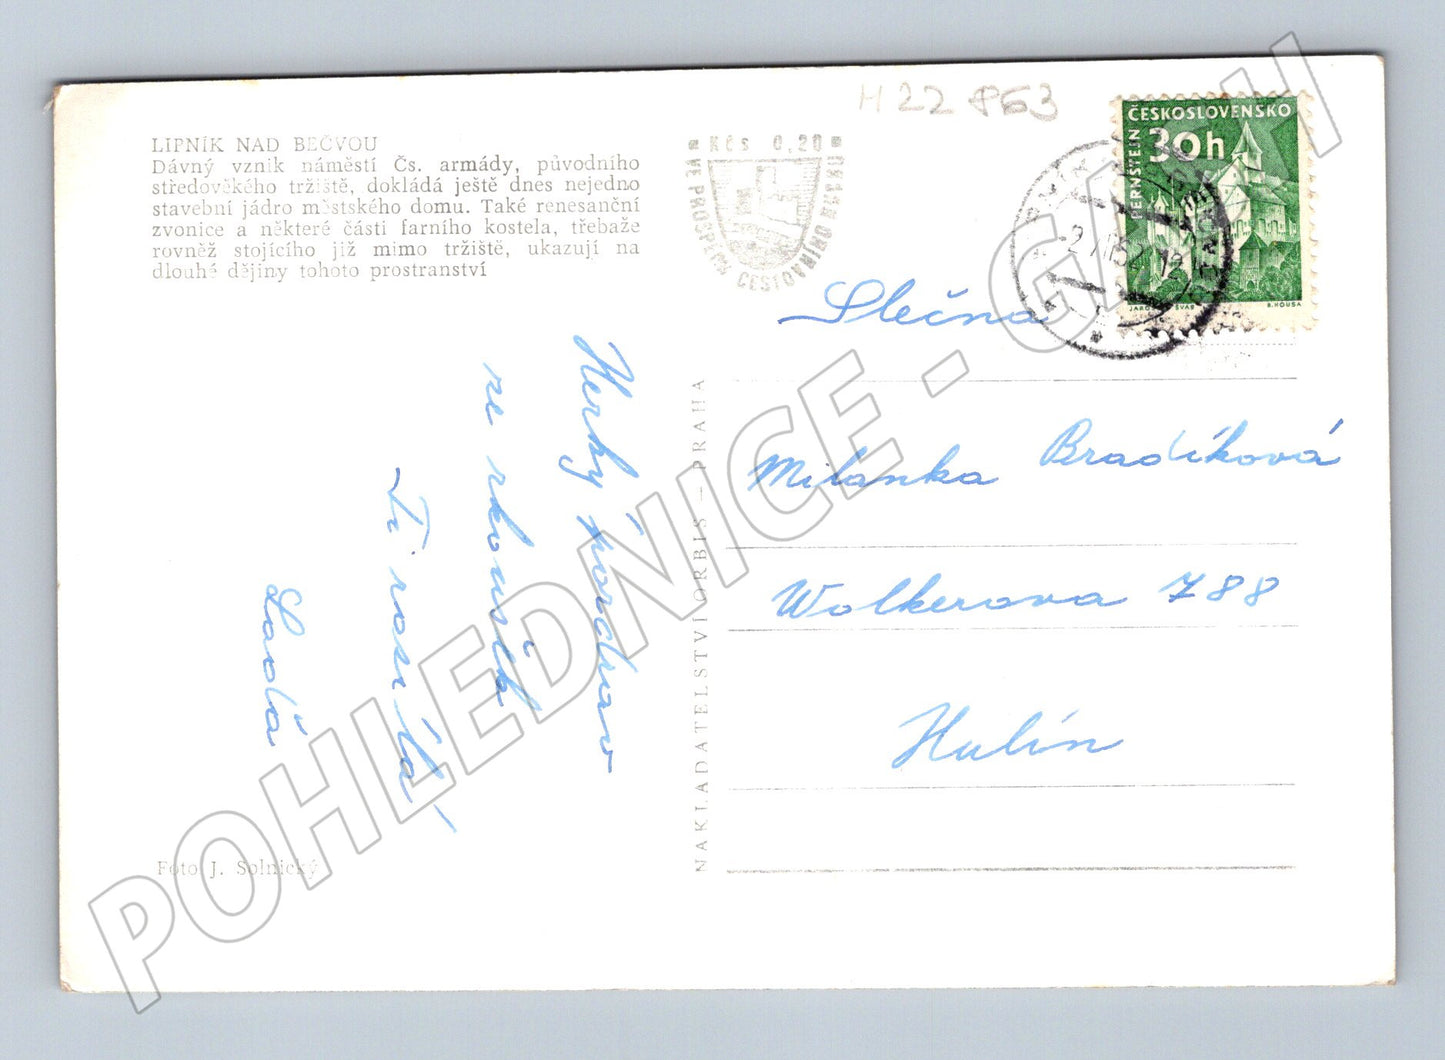 LIPNÍK NAD BEČVOU
Dávný vznik náměstí Čs. armády, původního
středověkého tržiště, dokládá ještě dnes nejedno
stavební jádro městského domu. Také renesanční
zvonice a některé části farního kostela, třebaže
rovněž stojícího již mimo tržiště, ukazují na
dlouhé dějiny tohoto prostranství
H 22 863
Kčs 0,20
VE PROSPĚCH CESTOVNÍHO RUCHU
ČESKOSLOVENSKO
30h
PERNŠTEJN
B. HOUSA
Hezký pozdrav
ze zkoušek
Ti zasílá
Laďa
Slečna
Milanka Bradíková
Wolkerova 788
Hulín
NAKLADATELSTVÍ ORBIS — PRAHA
Foto J. Solnický
POHLEDNICE - GAZH